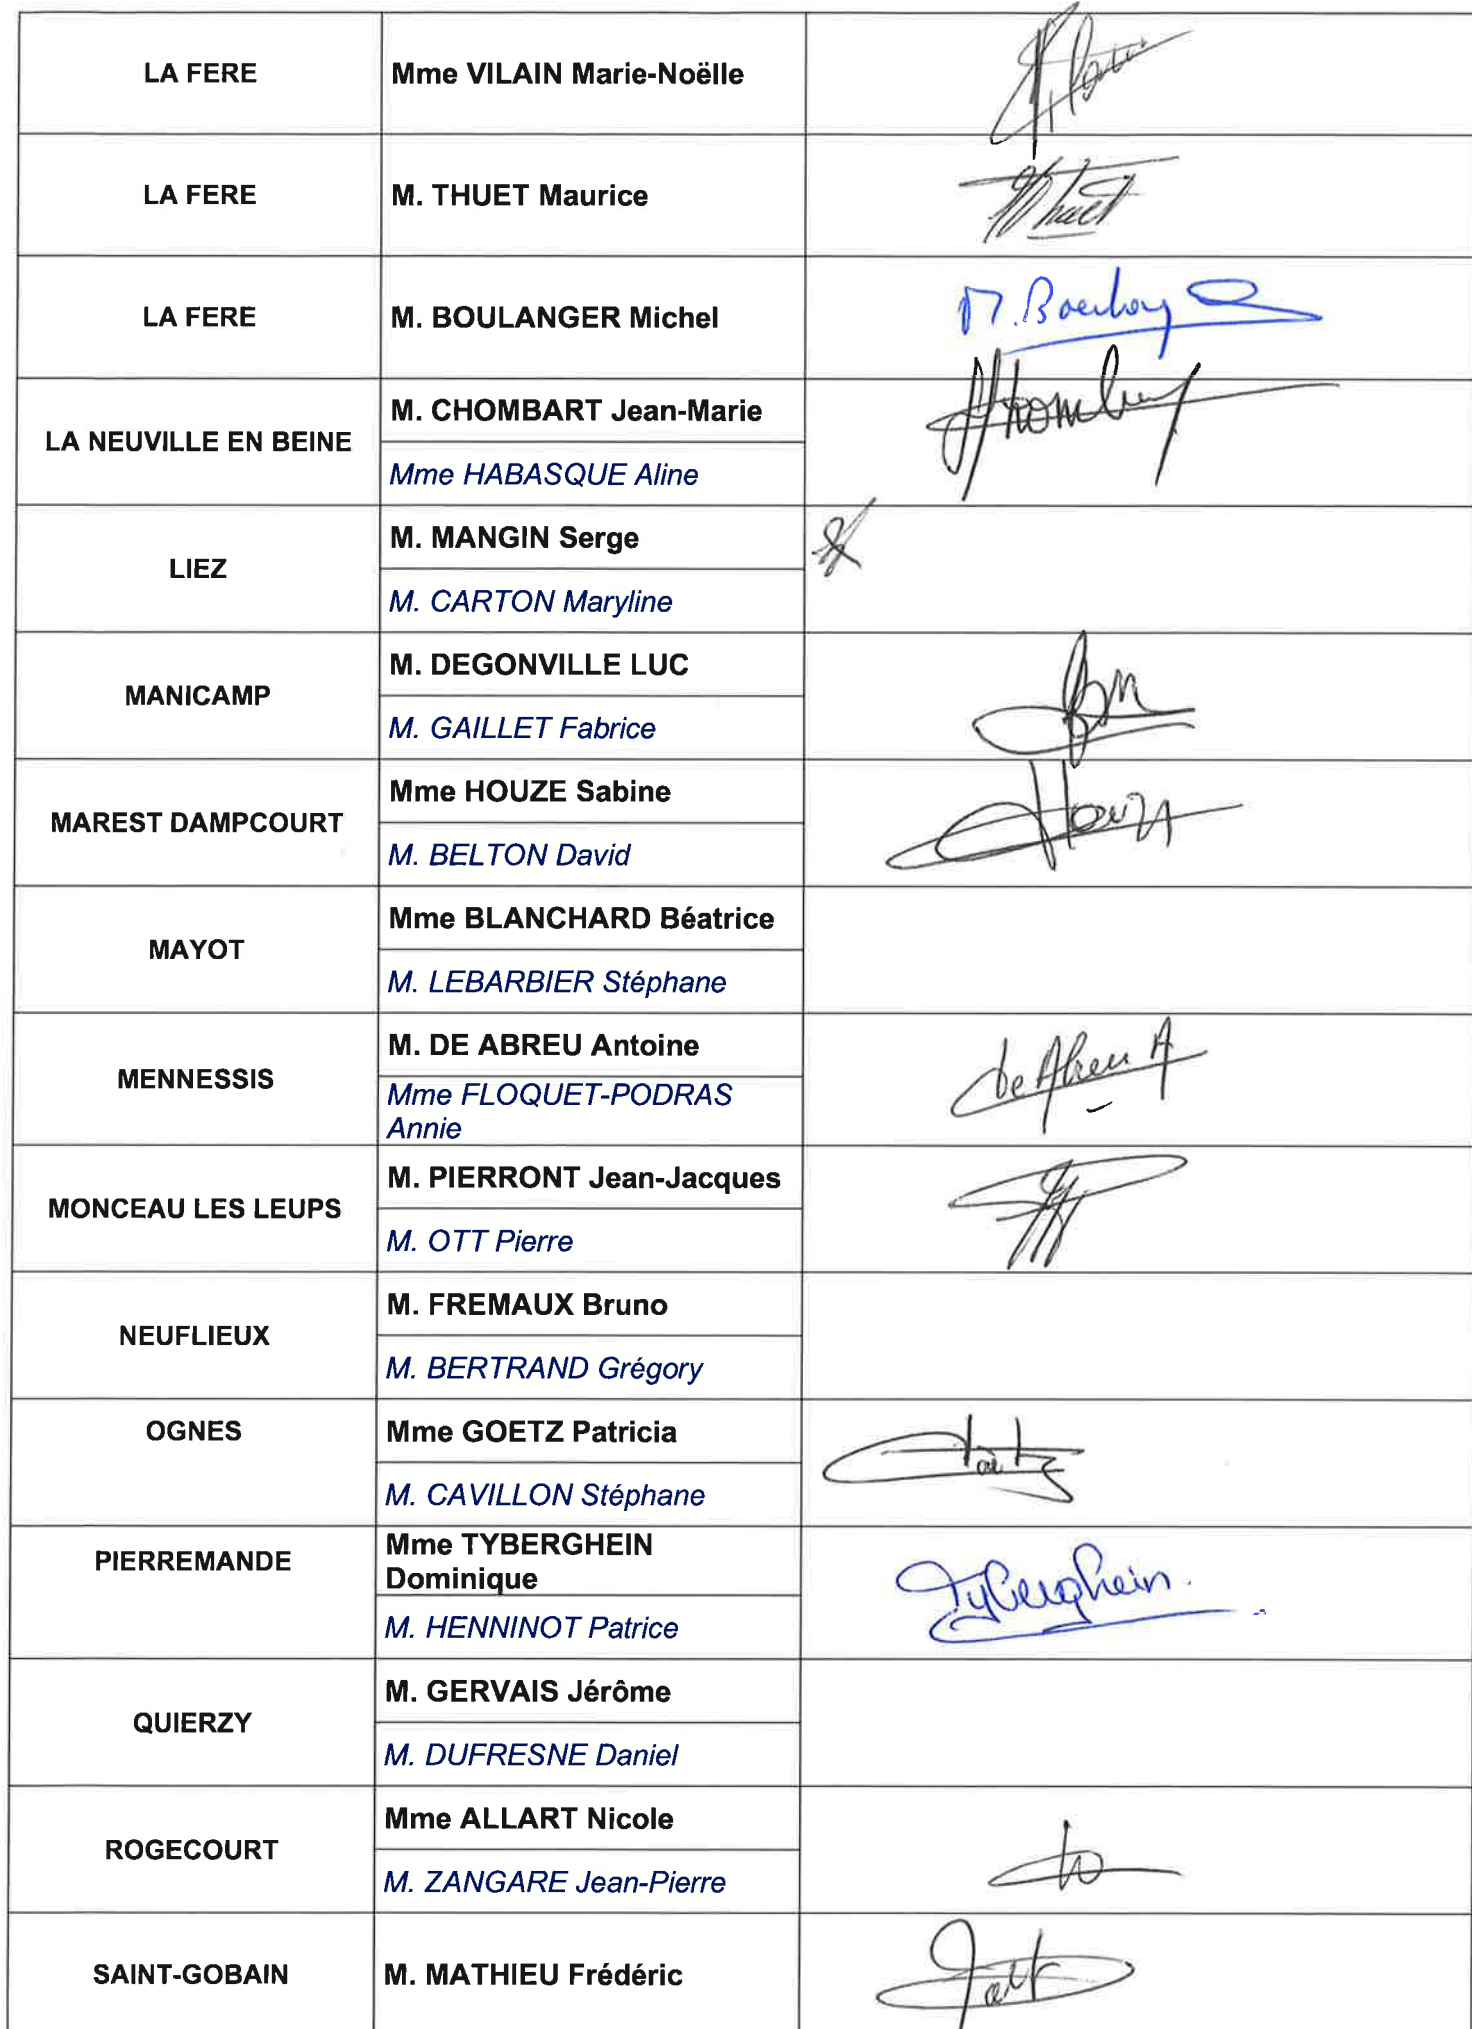 LA FERE
Mme VILAIN Marie-Noëlle
LA FERE
M. THUET Maurice
Thuet
LA FERE
M. BOULANGER Michel
LA NEUVILLE EN BEINE
M. CHOMBART Jean-Marie
Mme HABASQUE Aline
LIEZ
M. MANGIN Serge
M. CARTON Maryline
MANICAMP
M. DEGONVILLE LUC
M. GAILLET Fabrice
MAREST DAMPCOURT
Mme HOUZE Sabine
M. BELTON David
MAYOT
Mme BLANCHARD Béatrice
M. LEBARBIER Stéphane
MENNESSIS
M. DE ABREU Antoine
de Abreu A
Mme FLOQUET-PODRAS
Annie
MONCEAU LES LEUPS
M. PIERRONT Jean-Jacques
M. OTT Pierre
NEUFLIEUX
M. FREMAUX Bruno
M. BERTRAND Grégory
OGNES
Mme GOETZ Patricia
M. CAVILLON Stéphane
PIERREMANDE
Mme TYBERGHEIN
Dominique
Tyberghein.
M. HENNINOT Patrice
QUIERZY
M. GERVAIS Jérôme
M. DUFRESNE Daniel
ROGECOURT
Mme ALLART Nicole
M. ZANGARE Jean-Pierre
SAINT-GOBAIN
M. MATHIEU Frédéric